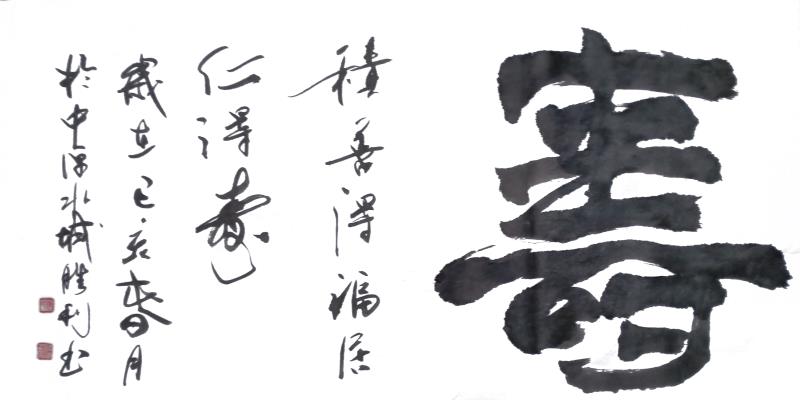 壽
積善得福居
仁得壽
歲在己亥春月
於中國水城勝利書